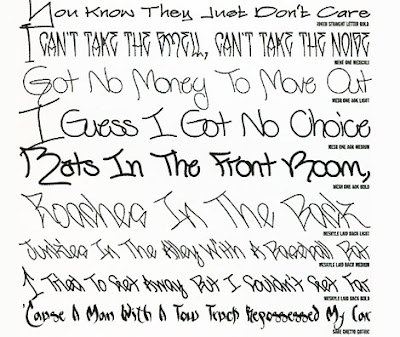 You Know They Just Don't Care
JOKER STRAIGHT LETTER BOLD
I CAN'T TAKE THE SMELL, CAN'T TAKE THE NOISE
MERZ ONE
Got No Money To Move Out
MESH ONE AOK LIGHT
I Guess I Got No Choice
MESH ONE AOK MEDIUM
Rats In The Front Room,
MESH ONE AOK BOLD
Roaches In The Back
MESKYLE LAID BACK LIGHT
Junkies In The Alley With A Baseball Bat
MESKYLE LAID BACK MEDIUM
I Tried To Get Away But I Couldn't Get Far
MESKYLE LAID BACK BOLD
'Cause A Man With A Tow Truck Repossessed My Car
SABE GHETTO GOTHIC